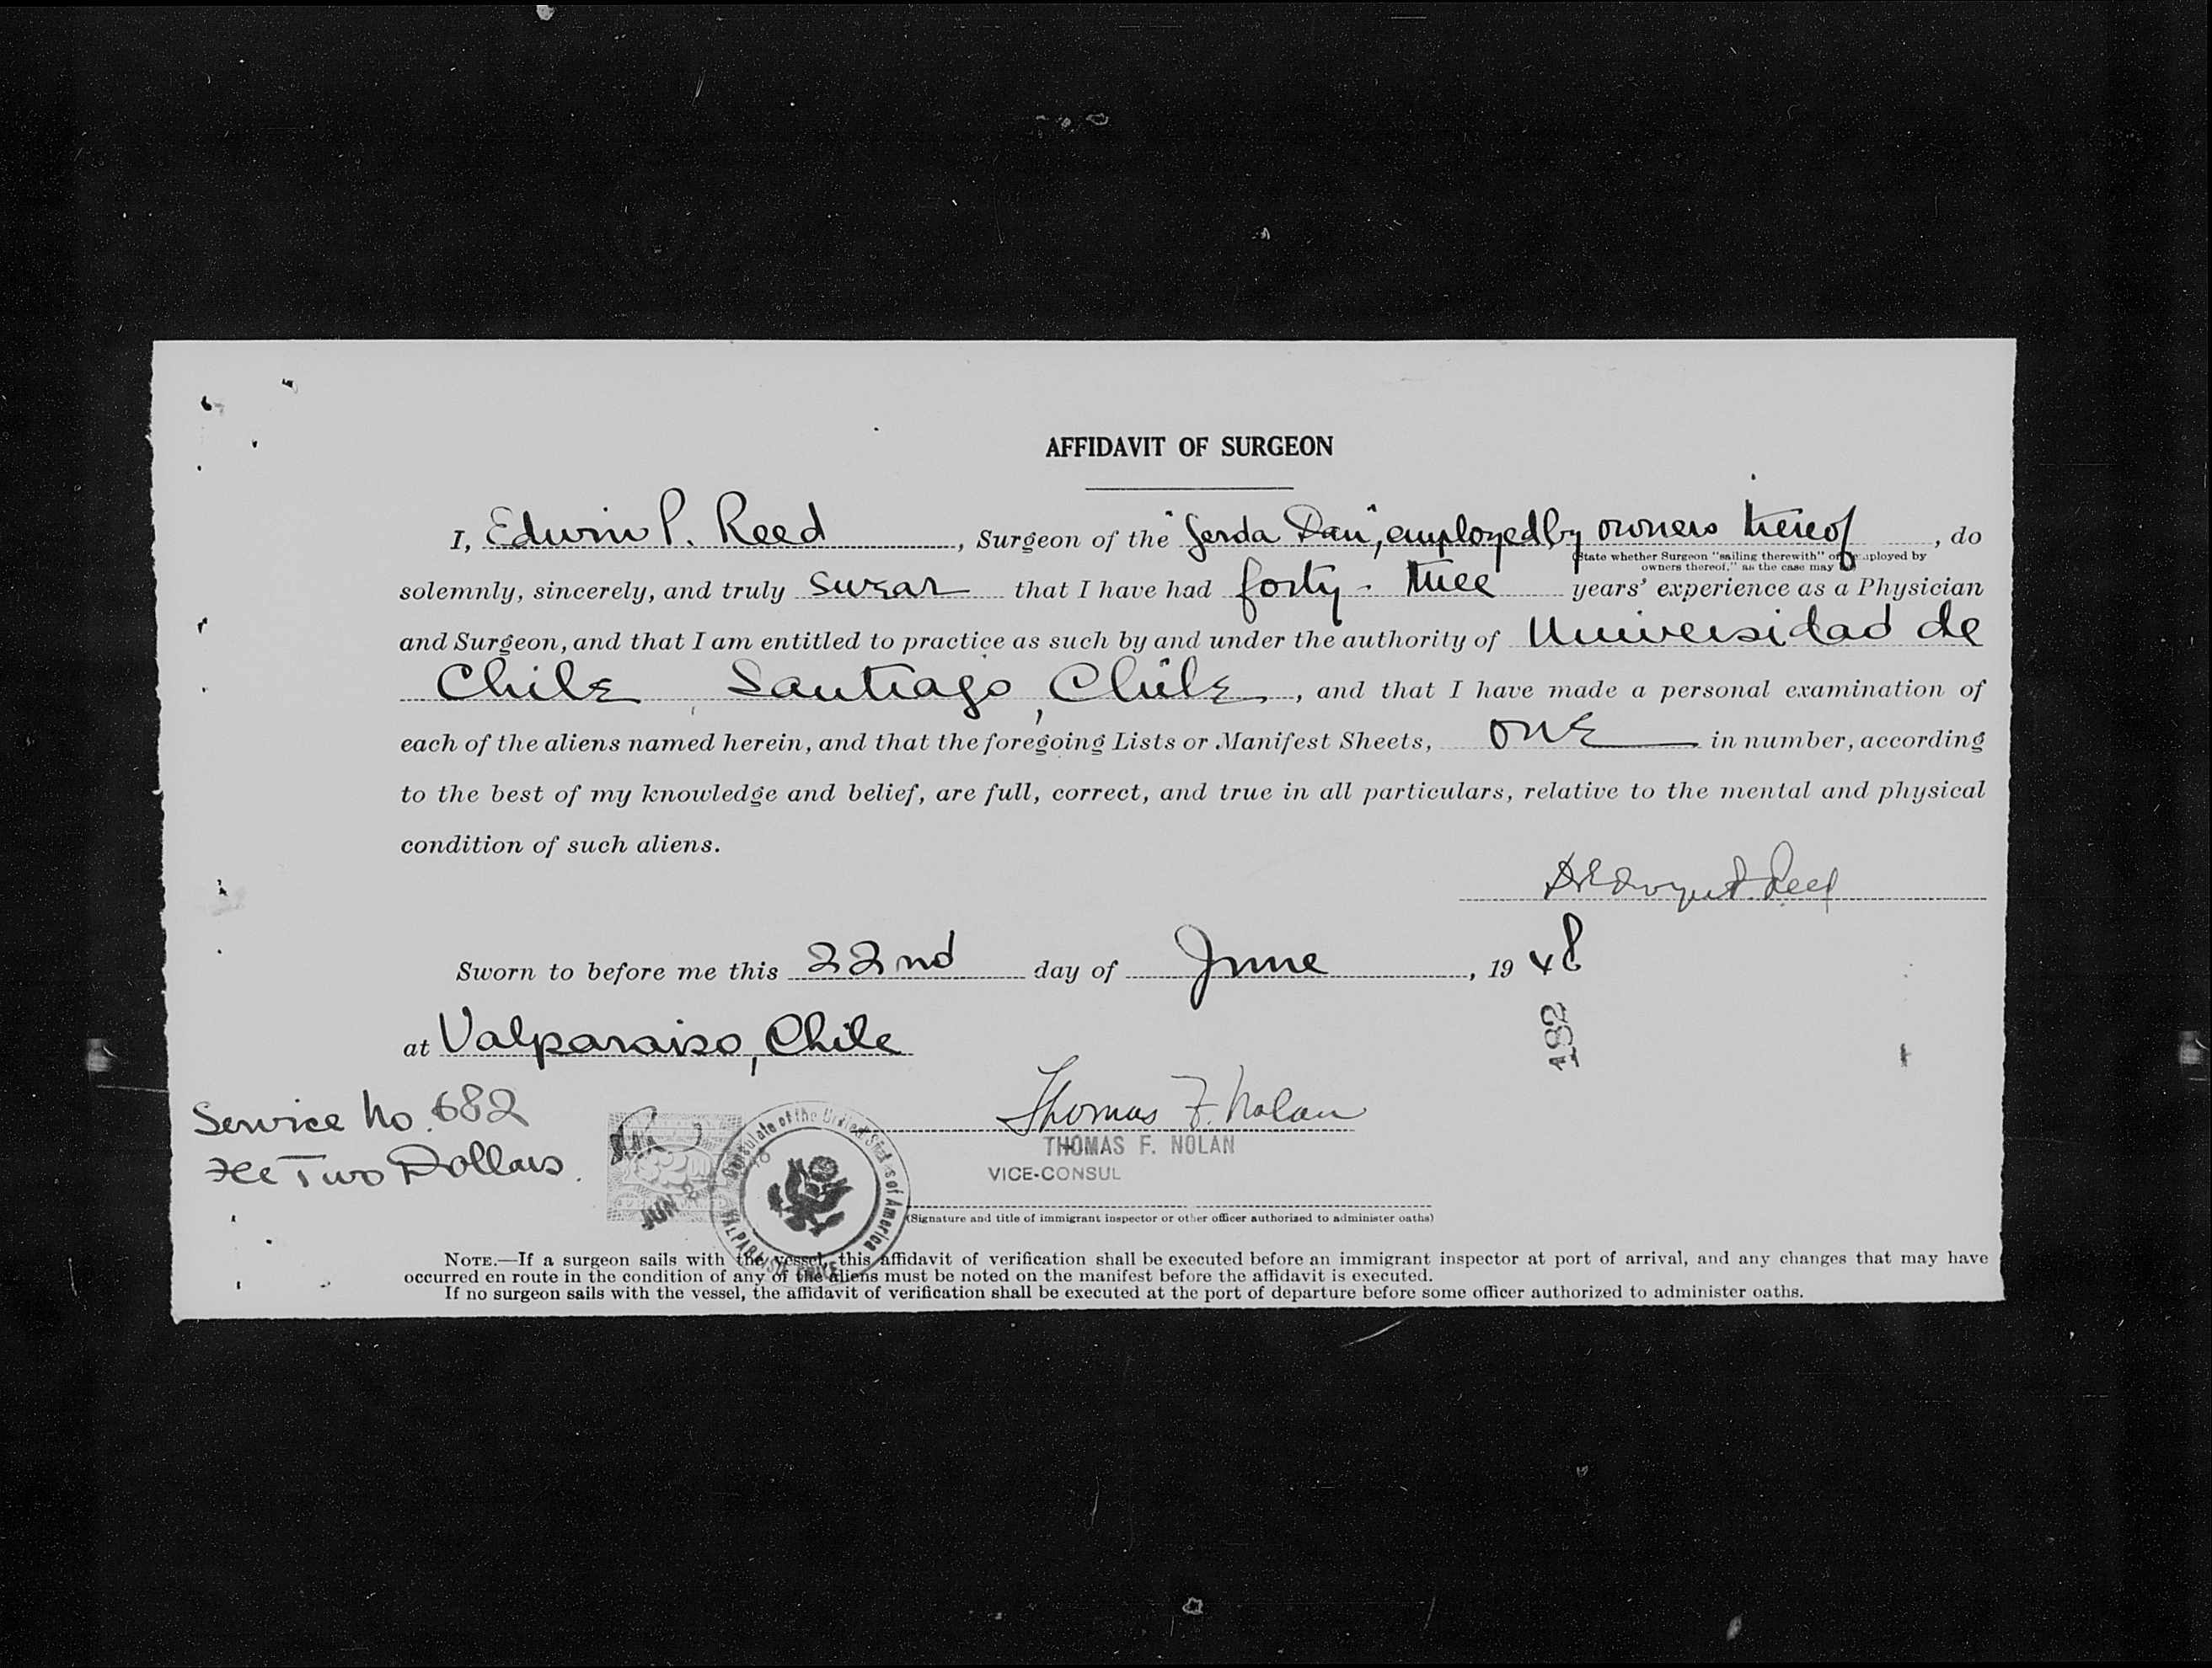 AFFIDAVIT OF SURGEON
I, Edwin P. Reed, Surgeon of the "Gerda Dan", employed by owners thereof, do
(State whether Surgeon "sailing therewith" or "employed by
owners thereof," as the case may
solemnly, sincerely, and truly swear that I have had forty-three years' experience as a Physician
and Surgeon, and that I am entitled to practice as such by and under the authority of Universidad de
Chile, Santiago, Chile, and that I have made a personal examination of
each of the aliens named herein, and that the foregoing Lists or Manifest Sheets, one in number, according
to the best of my knowledge and belief, are full, correct, and true in all particulars, relative to the mental and physical
condition of such aliens.
Sworn to before me this 22nd day of June, 1948
at Valparaiso, Chile
182
Service No. 682
Fee Two Dollars.
Thomas F. Nolan
THOMAS F. NOLAN
VICE-CONSUL
Consulate of the United States of America
JUN
(Signature and title of immigrant inspector or other officer authorized to administer oaths)
NOTE.—If a surgeon sails with the vessel, this affidavit of verification shall be executed before an immigrant inspector at port of arrival, and any changes that may have
occurred en route in the condition of any of the aliens must be noted on the manifest before the affidavit is executed.
If no surgeon sails with the vessel, the affidavit of verification shall be executed at the port of departure before some officer authorized to administer oaths.